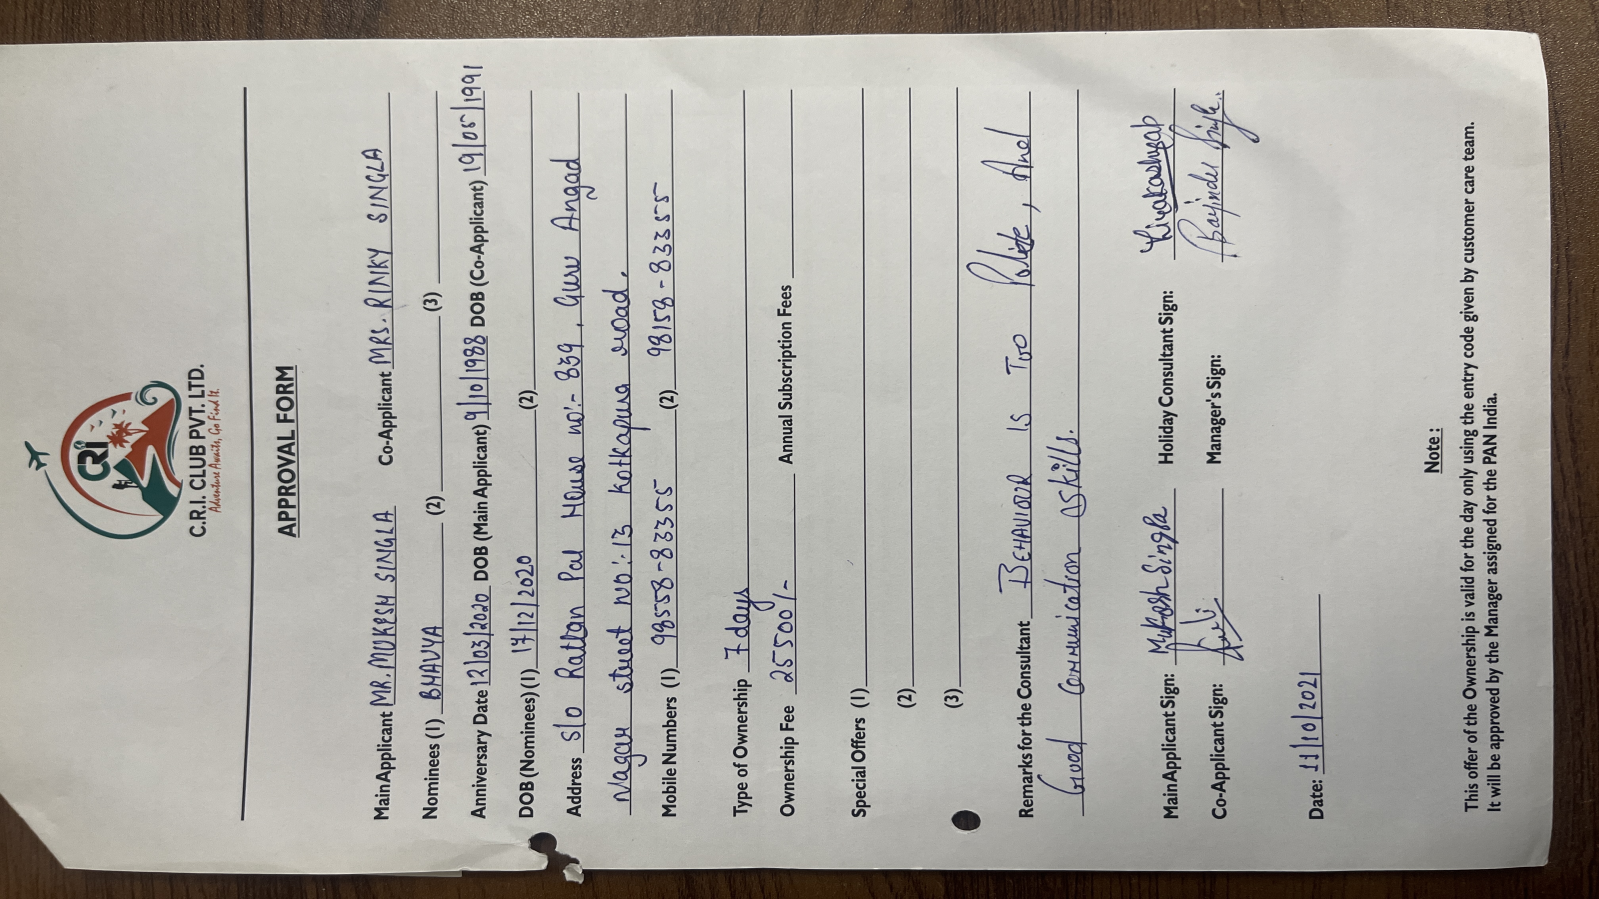 CRI
C.R.I. CLUB PVT. LTD.
Adventure Awaits, Go Find It.
APPROVAL FORM
Main Applicant MR. MUKESH SINGLA Co-Applicant MRS. RINKY SINGLA
Nominees (1) BHAVYA (2) (3)
Anniversary Date 12/03/2020 DOB (Main Applicant) 9/10/1988 DOB (Co-Applicant) 19/05/1991
DOB (Nominees) (1) 17/12/2020 (2)
Address S/O Rattan Pal House no:- 839, Guru Angad
Nagar street no:- 13 Kotkapura road.
Mobile Numbers (1) 98558-83355 (2) 98158-83355
Type of Ownership 7 days
Ownership Fee 25500/- Annual Subscription Fees
Special Offers (1)
(2)
(3)
Remarks for the Consultant BEHAVIOUR IS TOO Polite, And
Good Communication Skills.
Main Applicant Sign: Mukesh Singla Holiday Consultant Sign:
Co-Applicant Sign: Manager's Sign:
Date: 11/10/2021
Note :
This offer of the Ownership is valid for the day only using the entry code given by customer care team.
It will be approved by the Manager assigned for the PAN India.